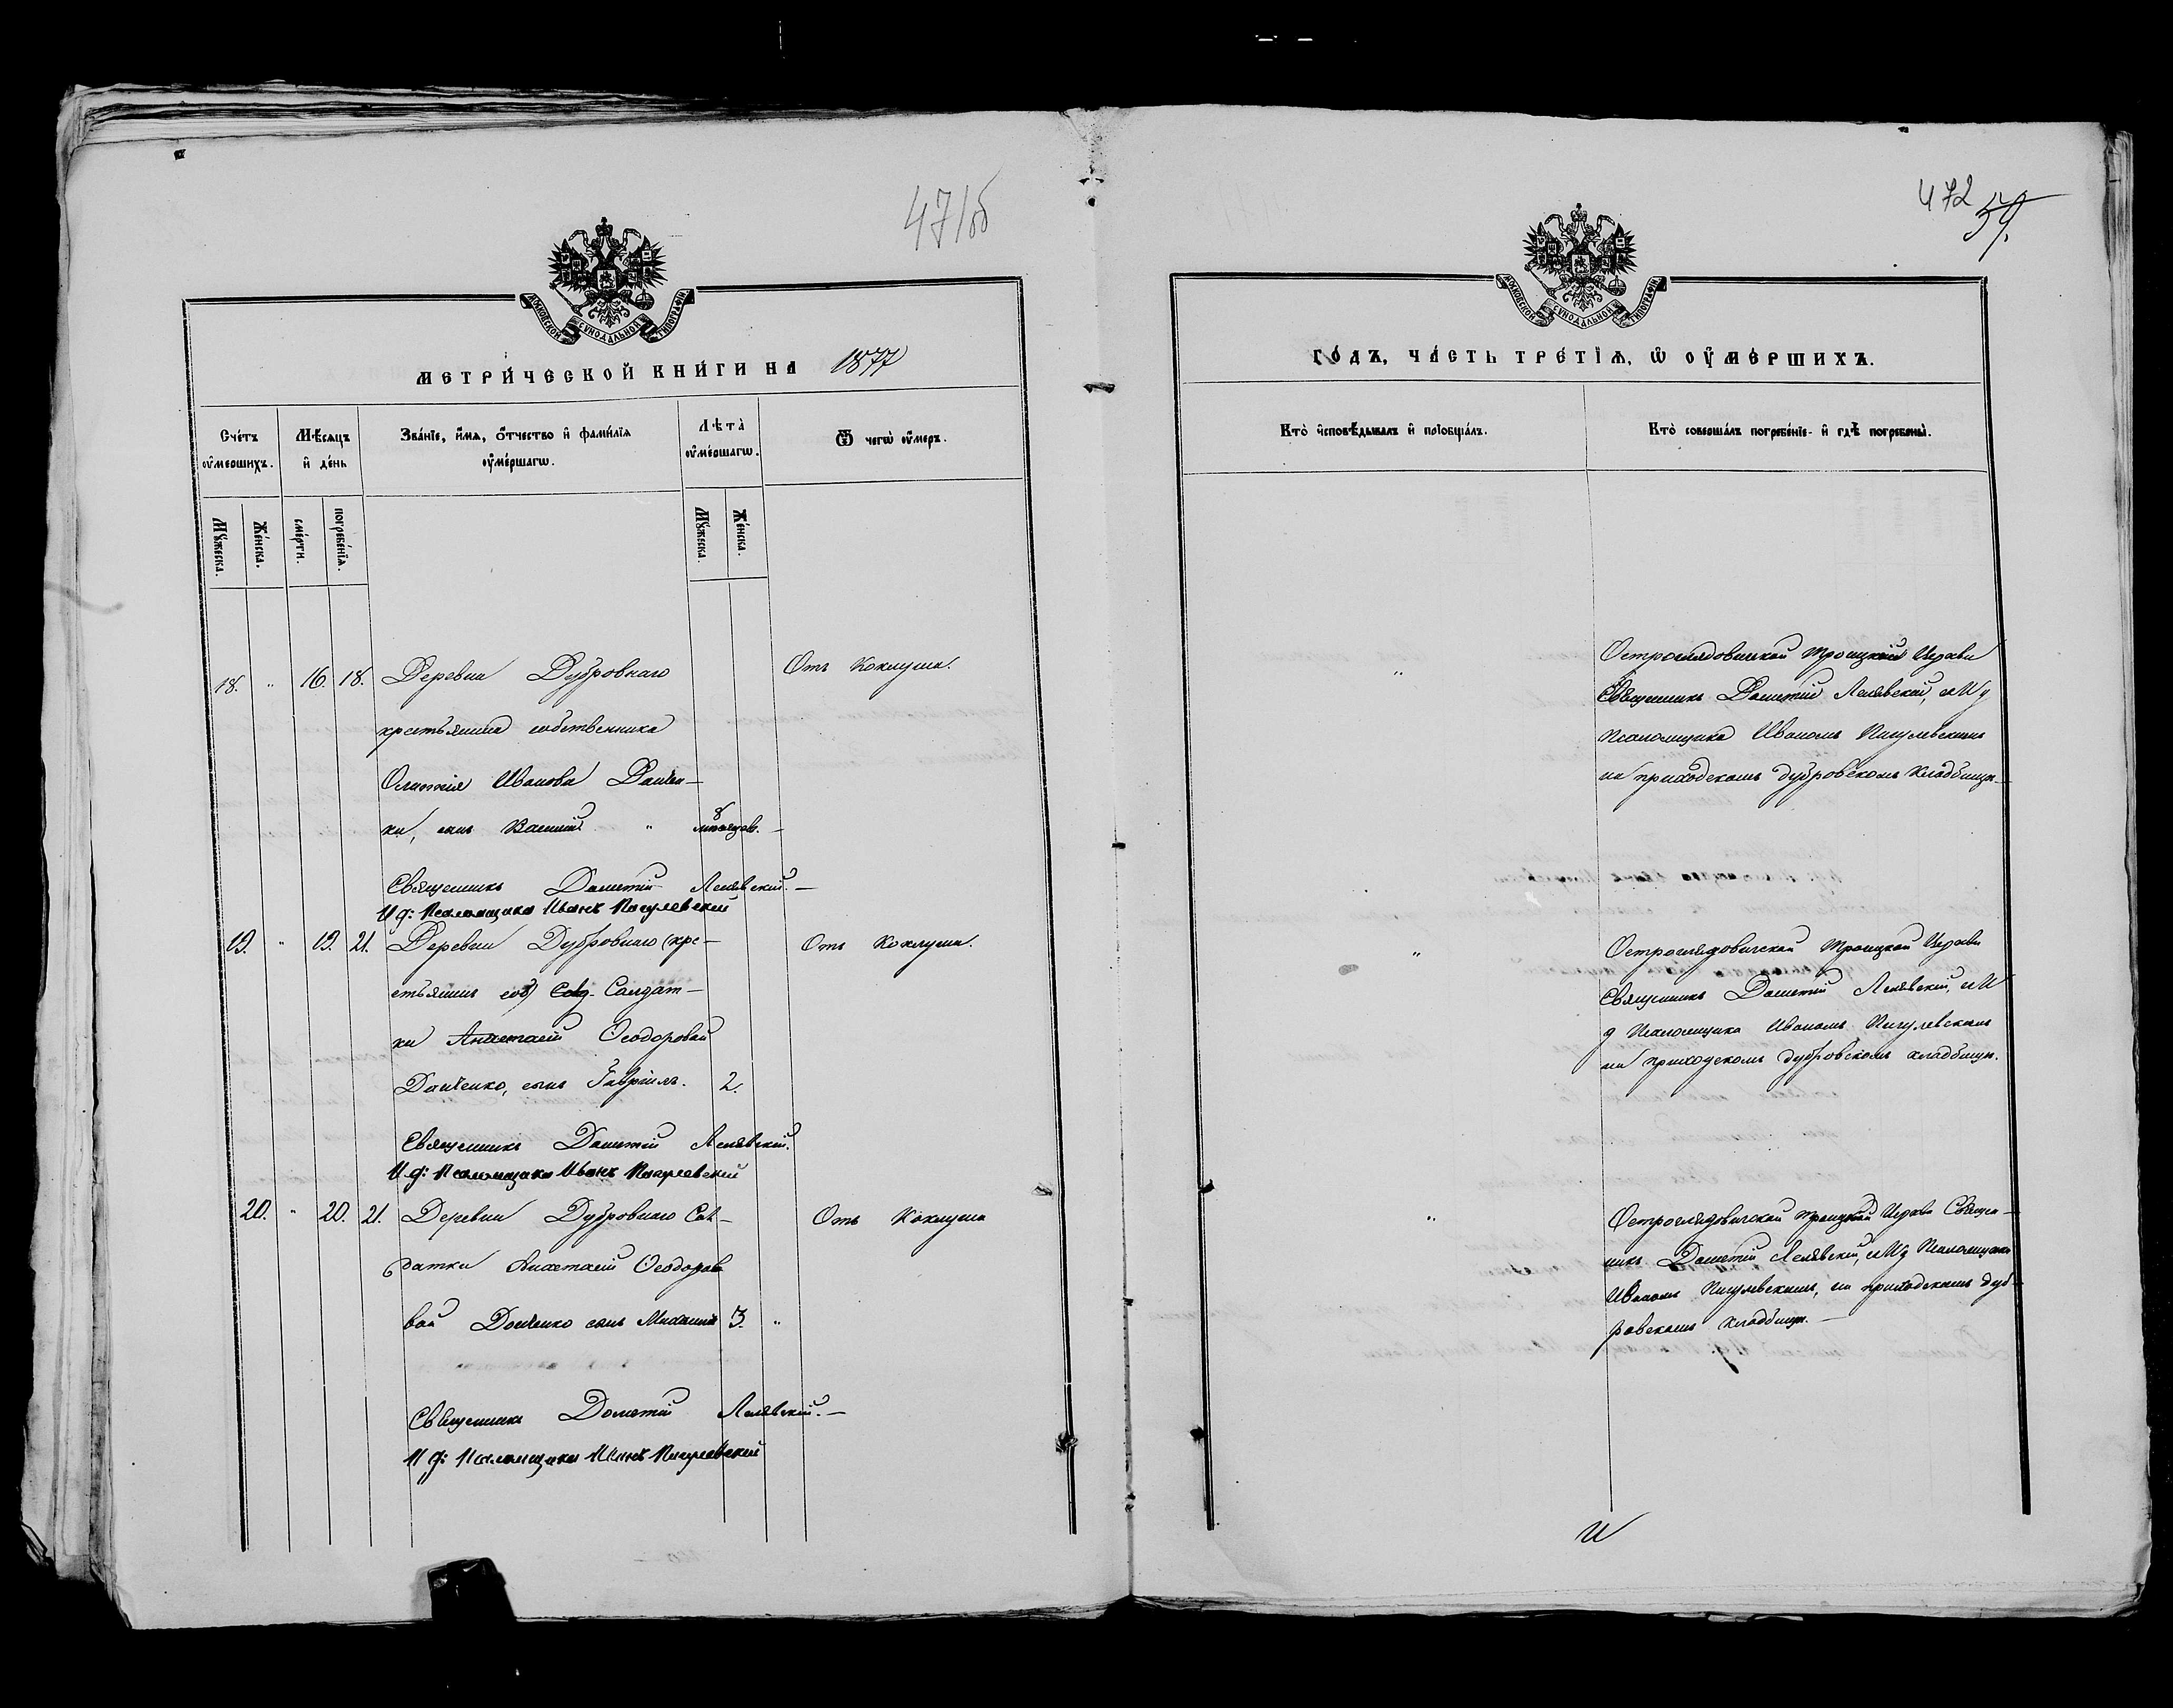 471об
МОСКОВСКОЙ СѴНОДАЛЬНОЙ ТИПОГРАФІИ
МЕТРИ́ЧЕСКОЙ КНИ́ГИ НА 1877
Сче́тъ оу҆ме́ршихъ.
Мѣ́сяцъ и҆ де́нь
Зва́нїе, и҆́мѧ, ѻ҆́тчество и҆ фами́лїѧ оу҆ме́ршагѡ.
Лѣ́та оу҆ме́ршагѡ.
Ѿ чегѡ̀ оу҆́меръ.
Мꙋ́жеска.
Же́нска.
сме́рти.
погребе́нїѧ.
Мꙋ́жеска.
Же́нска.
18. " 16. 18. Деревни Дубровнаго
Отъ Коклуша.
крестьянина собственника
Иванова
ки, сынъ Василій " 8 мѣсяцев.
Священникъ Дометій Лелявскій.
И д: Псаломщика Иванъ Пигулевскій
19. " 19. 21. Деревни Дубровнаго (кре-
Отъ Коклуша.
стьянин соб) Солдат-
ки Анастасіи Ѳеодоровой
Данченко, сынъ Гавріилъ. 2.
Священникъ Дометій Лелявскій.
И д: Псаломщика Иванъ Пигулевскій
20. " 20. 21. Деревни Дубровнаго Сол-
Отъ Коклуша
датки Анастасіи Ѳеодоров
вой Данченко сынъ Михаилъ 3. "
Священникъ Дометій Лелявскій.
И д: Псаломщика Иванъ Пигулевскій
472 59.
МОСКОВСКОЙ СѴНОДАЛЬНОЙ ТИПОГРАФІИ
ГО́ДЪ, ЧА́СТЬ ТРЕ́ТІѦ, Ѡ҆ ОУ҆МЕ́РШИХЪ.
Кто̀ и҆сповѣ́дывалъ и҆ прїобща́лъ.
Кто̀ соверша́лъ погребе́нїе и҆ гдѣ̀ погребены̀.
"
Остроглядовичской Троицкой Церкви
Священникъ Дометій Лелявскій, съ И д
Псаломщика Иваномъ Пигулевскимъ
на приходскомъ дубровскомъ кладбищѣ.
"
Остроглядовичской Троицкой Церкви
Священникъ Дометій Лелявскій, съ И
д Псаломщика Иваномъ Пигулевскимъ
на приходскомъ дубровскомъ кладбищѣ.
"
Остроглядовичской Троицкой Церкви Священ-
никъ Дометій Лелявскій, съ И д Псаломщика
Иваномъ Пигулевскимъ, на приходскомъ дуб-
ровскомъ кладбищѣ.
И